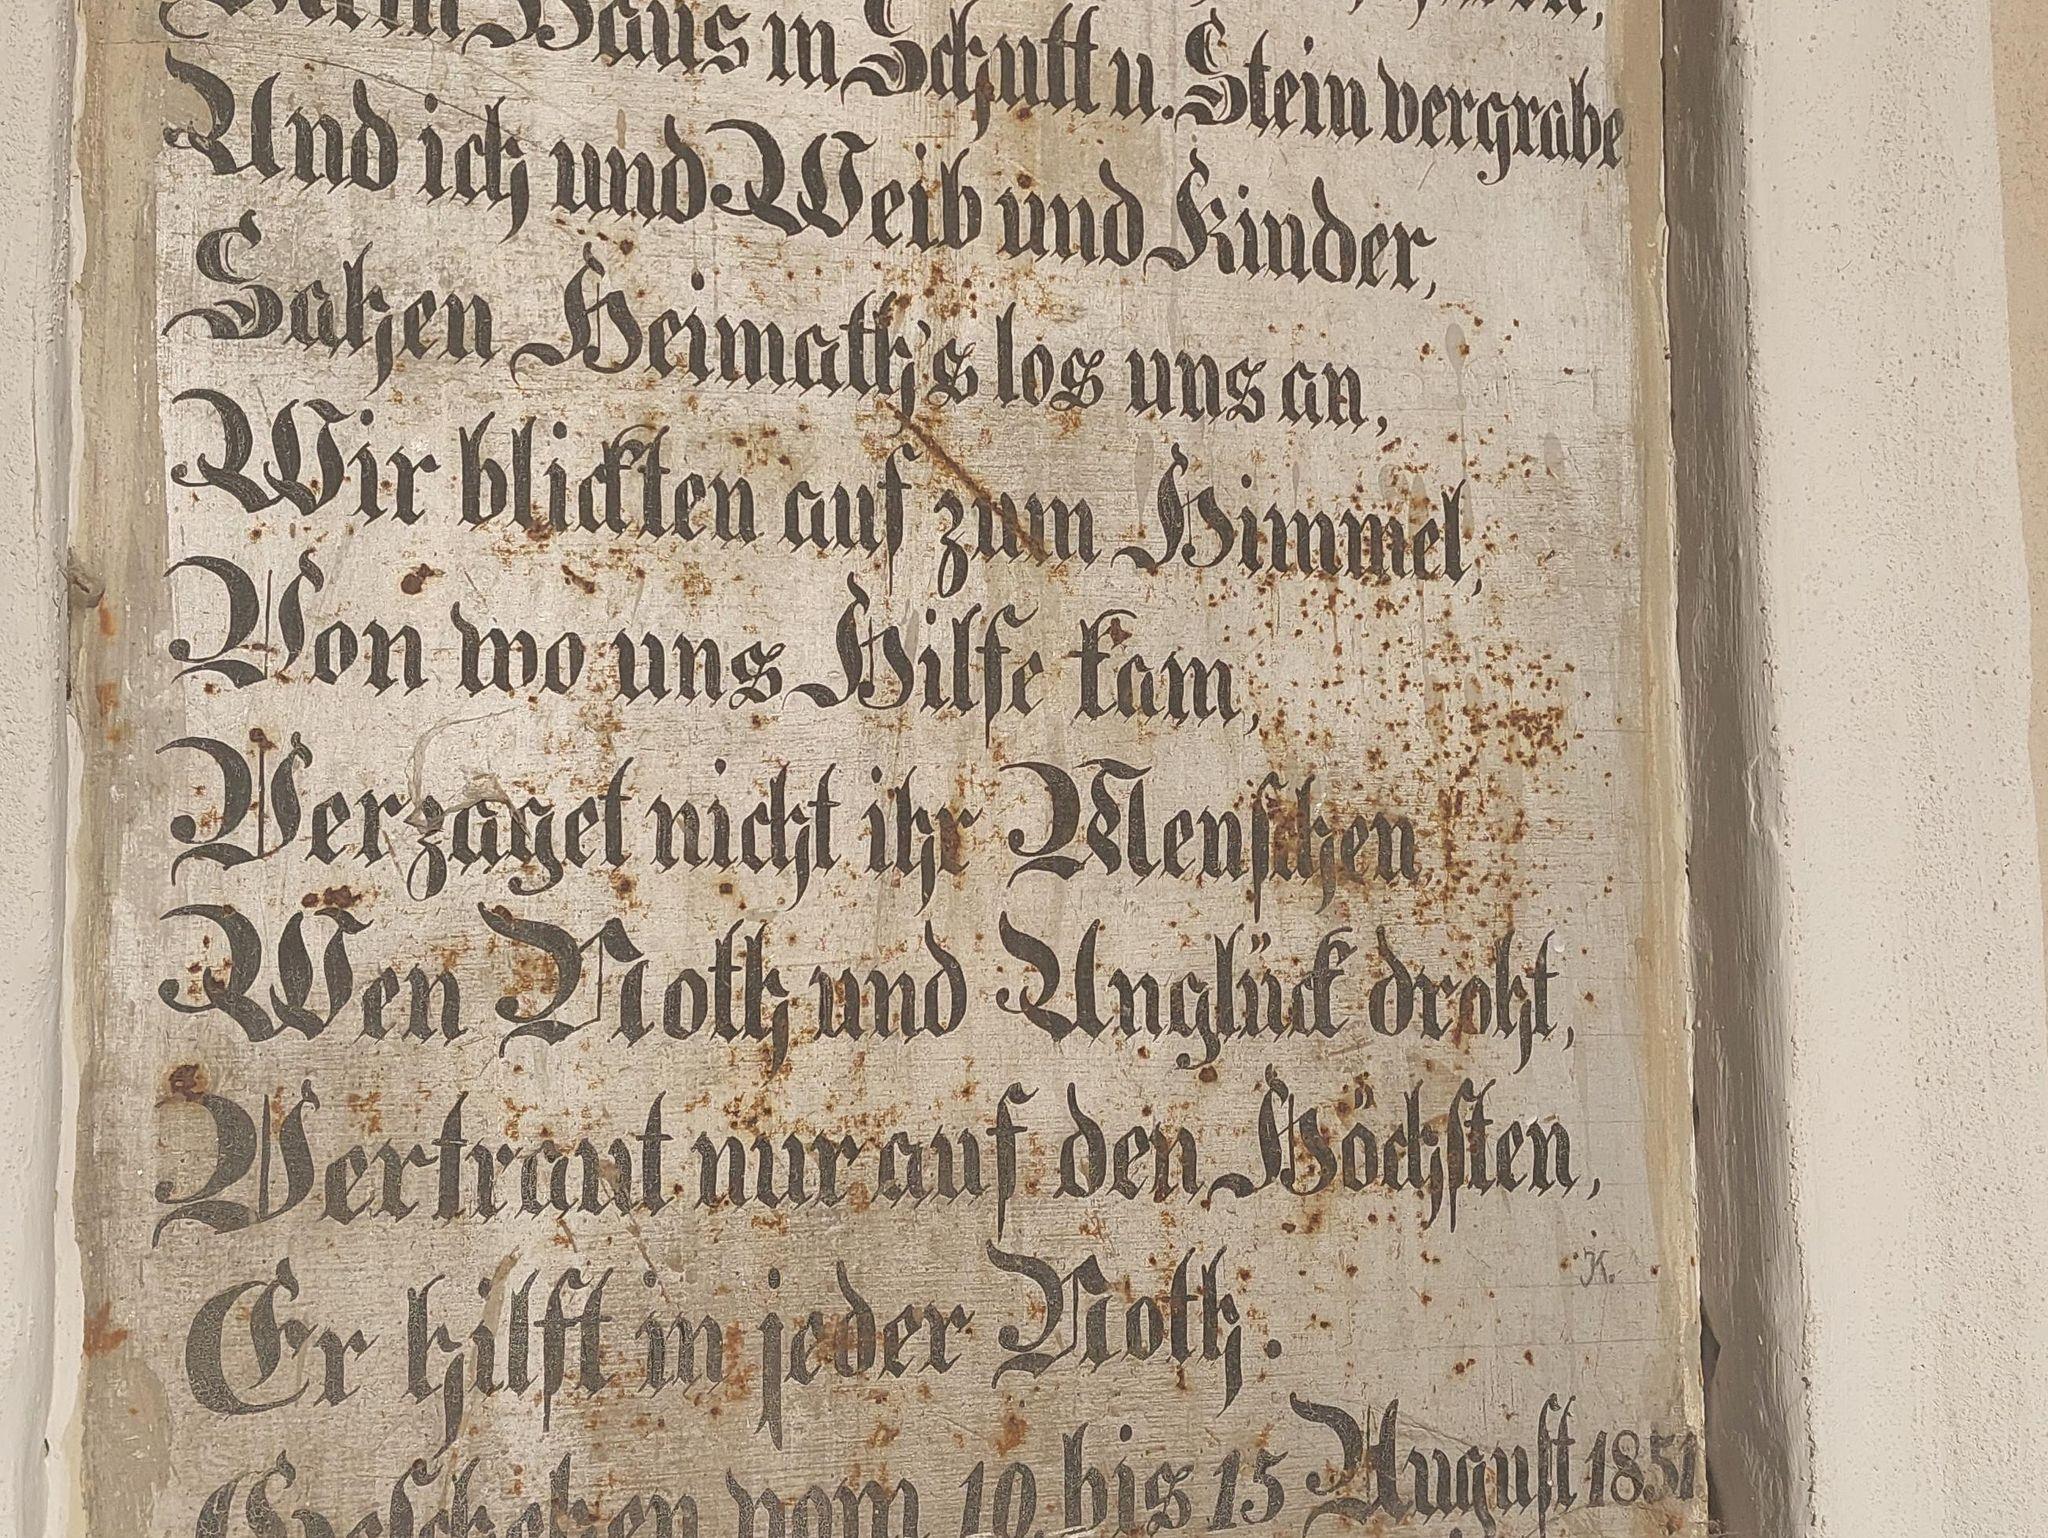 Mein Haus in Schutt u. Stein vergrabe
Und ich und Weib und Kinder,
Sahen Heimath's los uns an,
Wir blickten auf zum Himmel,
Von wo uns Hilfe kam,
Verzaget nicht ihr Menschen,
Wen Noth und Unglück droht,
Vertraut nur auf den Höchsten,
Er hilft in jeder Noth.
K.
Geschehen vom 10. bis 15 August 1851